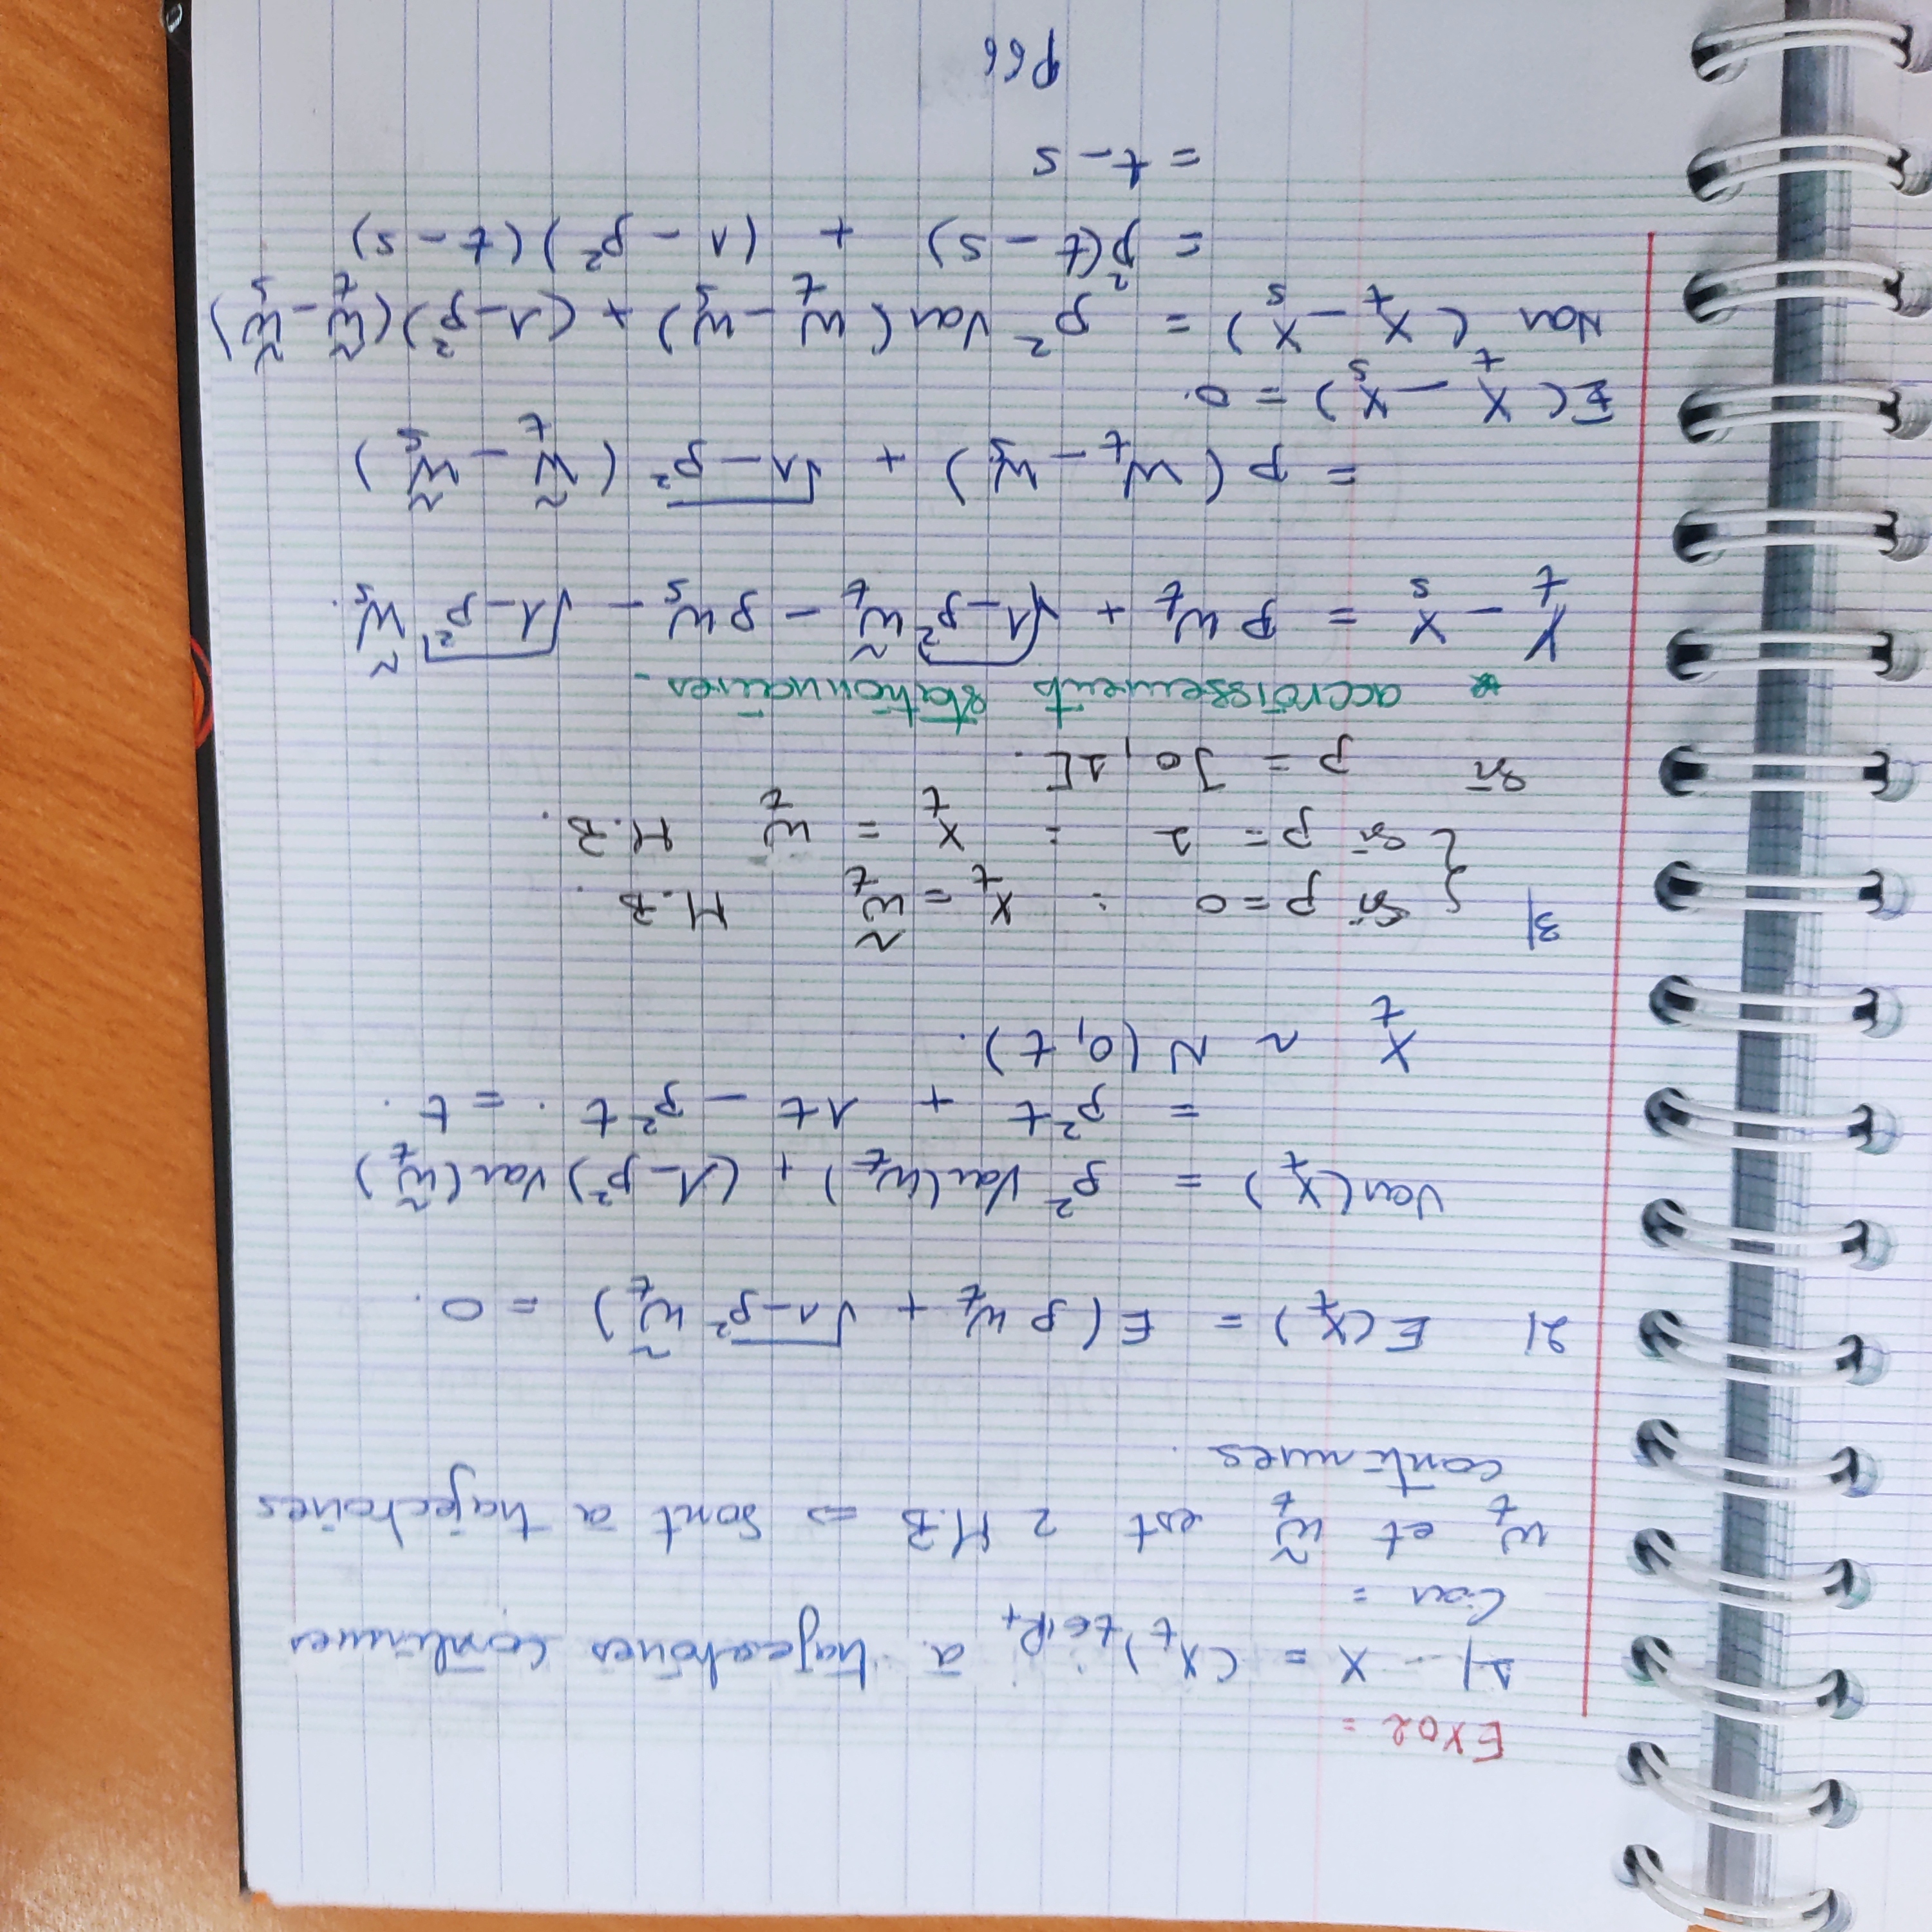 EXO2 =
1) - X = (X_t)_{t∈ℝ+} à trajectoires continues
Car =
W_t et W̃_t est 2 M.B ⇒ sont à trajectoires
continues.
2) E(X_t) = E(ρ W_t + √(1-ρ²) W̃_t) = 0.
Var(X_t) = ρ² Var(W_t) + (1-ρ²) Var(W̃_t)
= ρ²t + 1t - ρ²t. = t.
X_t ~ N(0, t).
3) { Si ρ = 0 : X_t = W̃_t M.B.
Si ρ = 1 : X_t = W_t M.B.
Si ρ = ]0, 1[.
* accroissements stationnaires-
X_t - X_s = ρ W_t + √(1-ρ²) W̃_t - ρ W_s - √(1-ρ²) W̃_s.
= ρ (W_t - W_s) + √(1-ρ²) (W̃_t - W̃_s)
E(X_t - X_s) = 0.
Var (X_t - X_s) = ρ² Var(W_t - W_s) + (1-ρ²)(W̃_t - W̃_s)
= ρ²(t - s) + (1 - ρ²)(t - s)
= t - s
P66